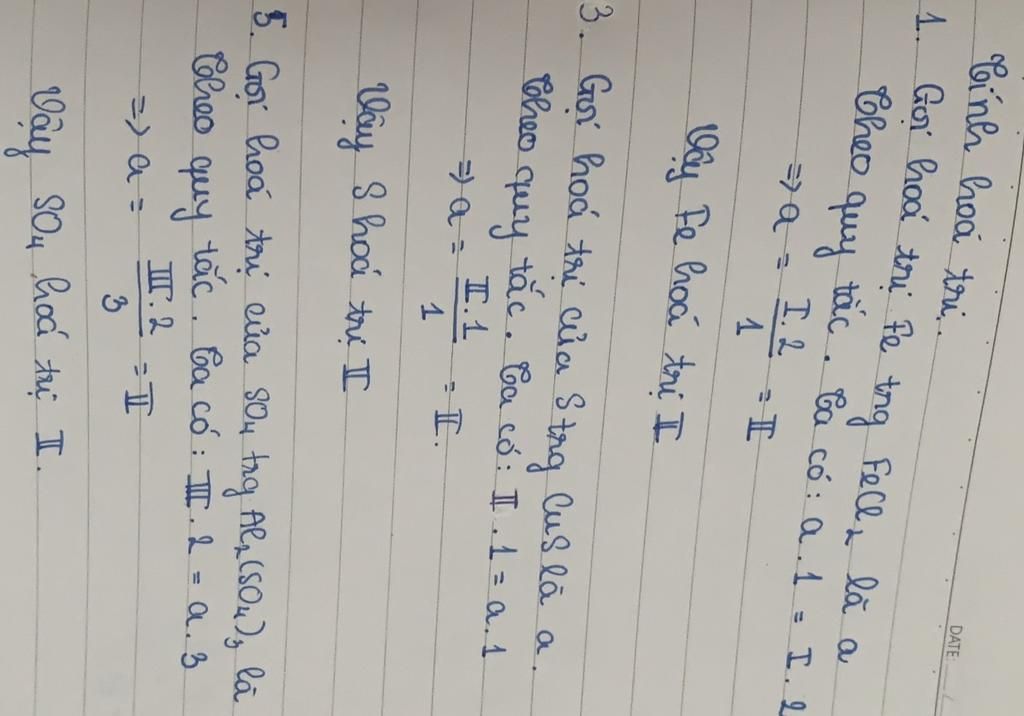 DATE:
Tính hoá trị.
1. Gọi hoá trị Fe trg FeCl₂ là a
Theo quy tắc. Ta có: a.1 = I.2
=> a = I.2/1 = II
Vậy Fe hoá trị II
3. Gọi hoá trị của S trg CuS là a.
Theo quy tắc. Ta có: II.1 = a.1
=> a = II.1/1 = II.
Vậy S hoá trị II
5. Gọi hoá trị của SO₄ trg Al₂(SO₄)₃ là
Theo quy tắc. Ta có: III.2 = a.3
=> a = III.2/3 = II
Vậy SO₄ hoá trị II.